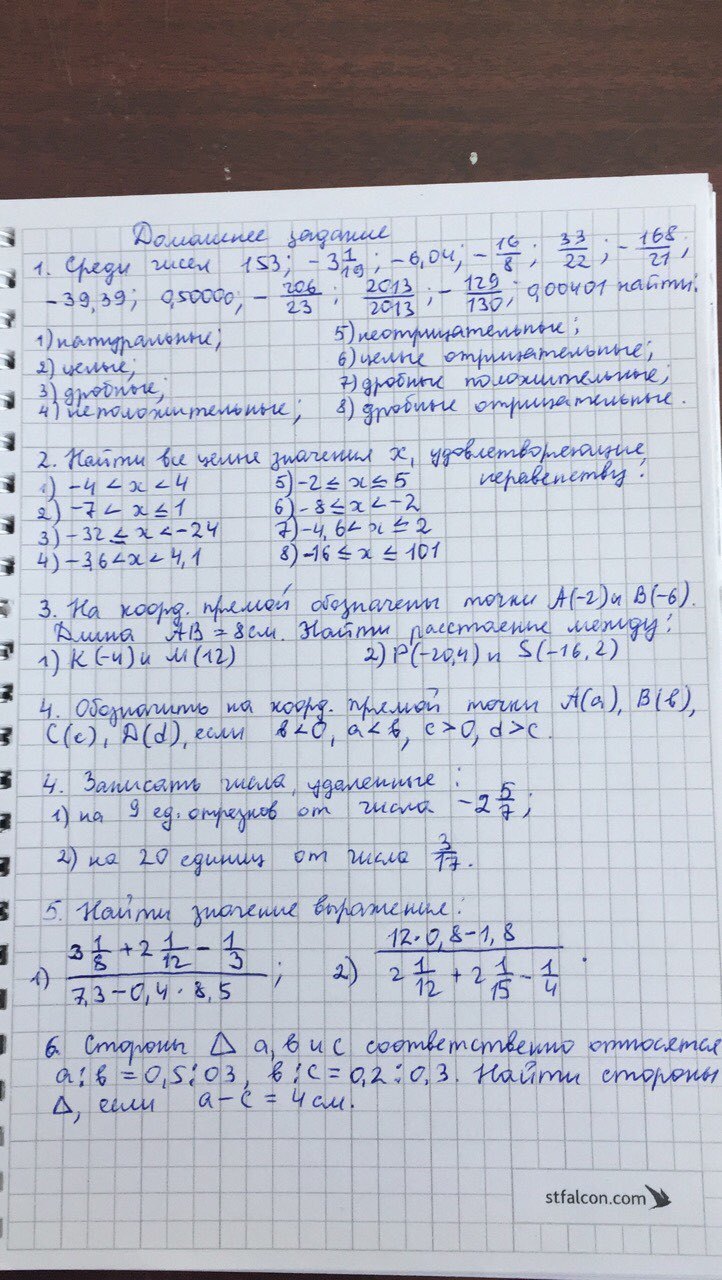 Домашнее задание
1. Среди чисел 153; -3 1/19; -6,04; -16/8; 33/22; -168/21;
-39,39; 0,50000; -206/23; 2013/2013; -129/130; 0,00401 найти:
1) натуральные; 5) неотрицательные;
2) целые; 6) целые отрицательные;
3) дробные; 7) дробные положительные;
4) неположительные; 8) дробные отрицательные.
2. Найти все целые значения x, удовлетворяющие
неравенству:
1) -4 < x < 4 5) -2 ≤ x ≤ 5
2) -7 < x ≤ 1 6) -8 ≤ x < -2
3) -32 ≤ x < -24 7) -4,6 < x ≤ 2
4) -3,6 < x < 4,1 8) -16 ≤ x ≤ 101
3. На коорд. прямой обозначены точки A(-2) и B(-6).
Длина AB = 8 см. Найти расстояние между:
1) K(-4) и M(12) 2) P(-20,4) и S(-16,2)
4. Обозначить на коорд. прямой точки A(a), B(b),
C(c), D(d), если b<0, a<b, c>0, d>c.
4. Записать числа, удаленные:
1) на 9 ед. отрезков от числа -2 5/7;
2) на 20 единиц от числа 3/17.
5. Найти значение выражения:
1) (3 1/8 + 2 1/12 - 1/3)/(7,3 - 0,4 · 8,5); 2) (12·0,8-1,8)/(2 1/12 + 2 1/15 - 1/4).
6. Стороны Δ a, b и c соответственно относятся
a:b = 0,5:03, b:c = 0,2:0,3. Найти стороны
Δ, если a-c = 4 см.
stfalcon.com